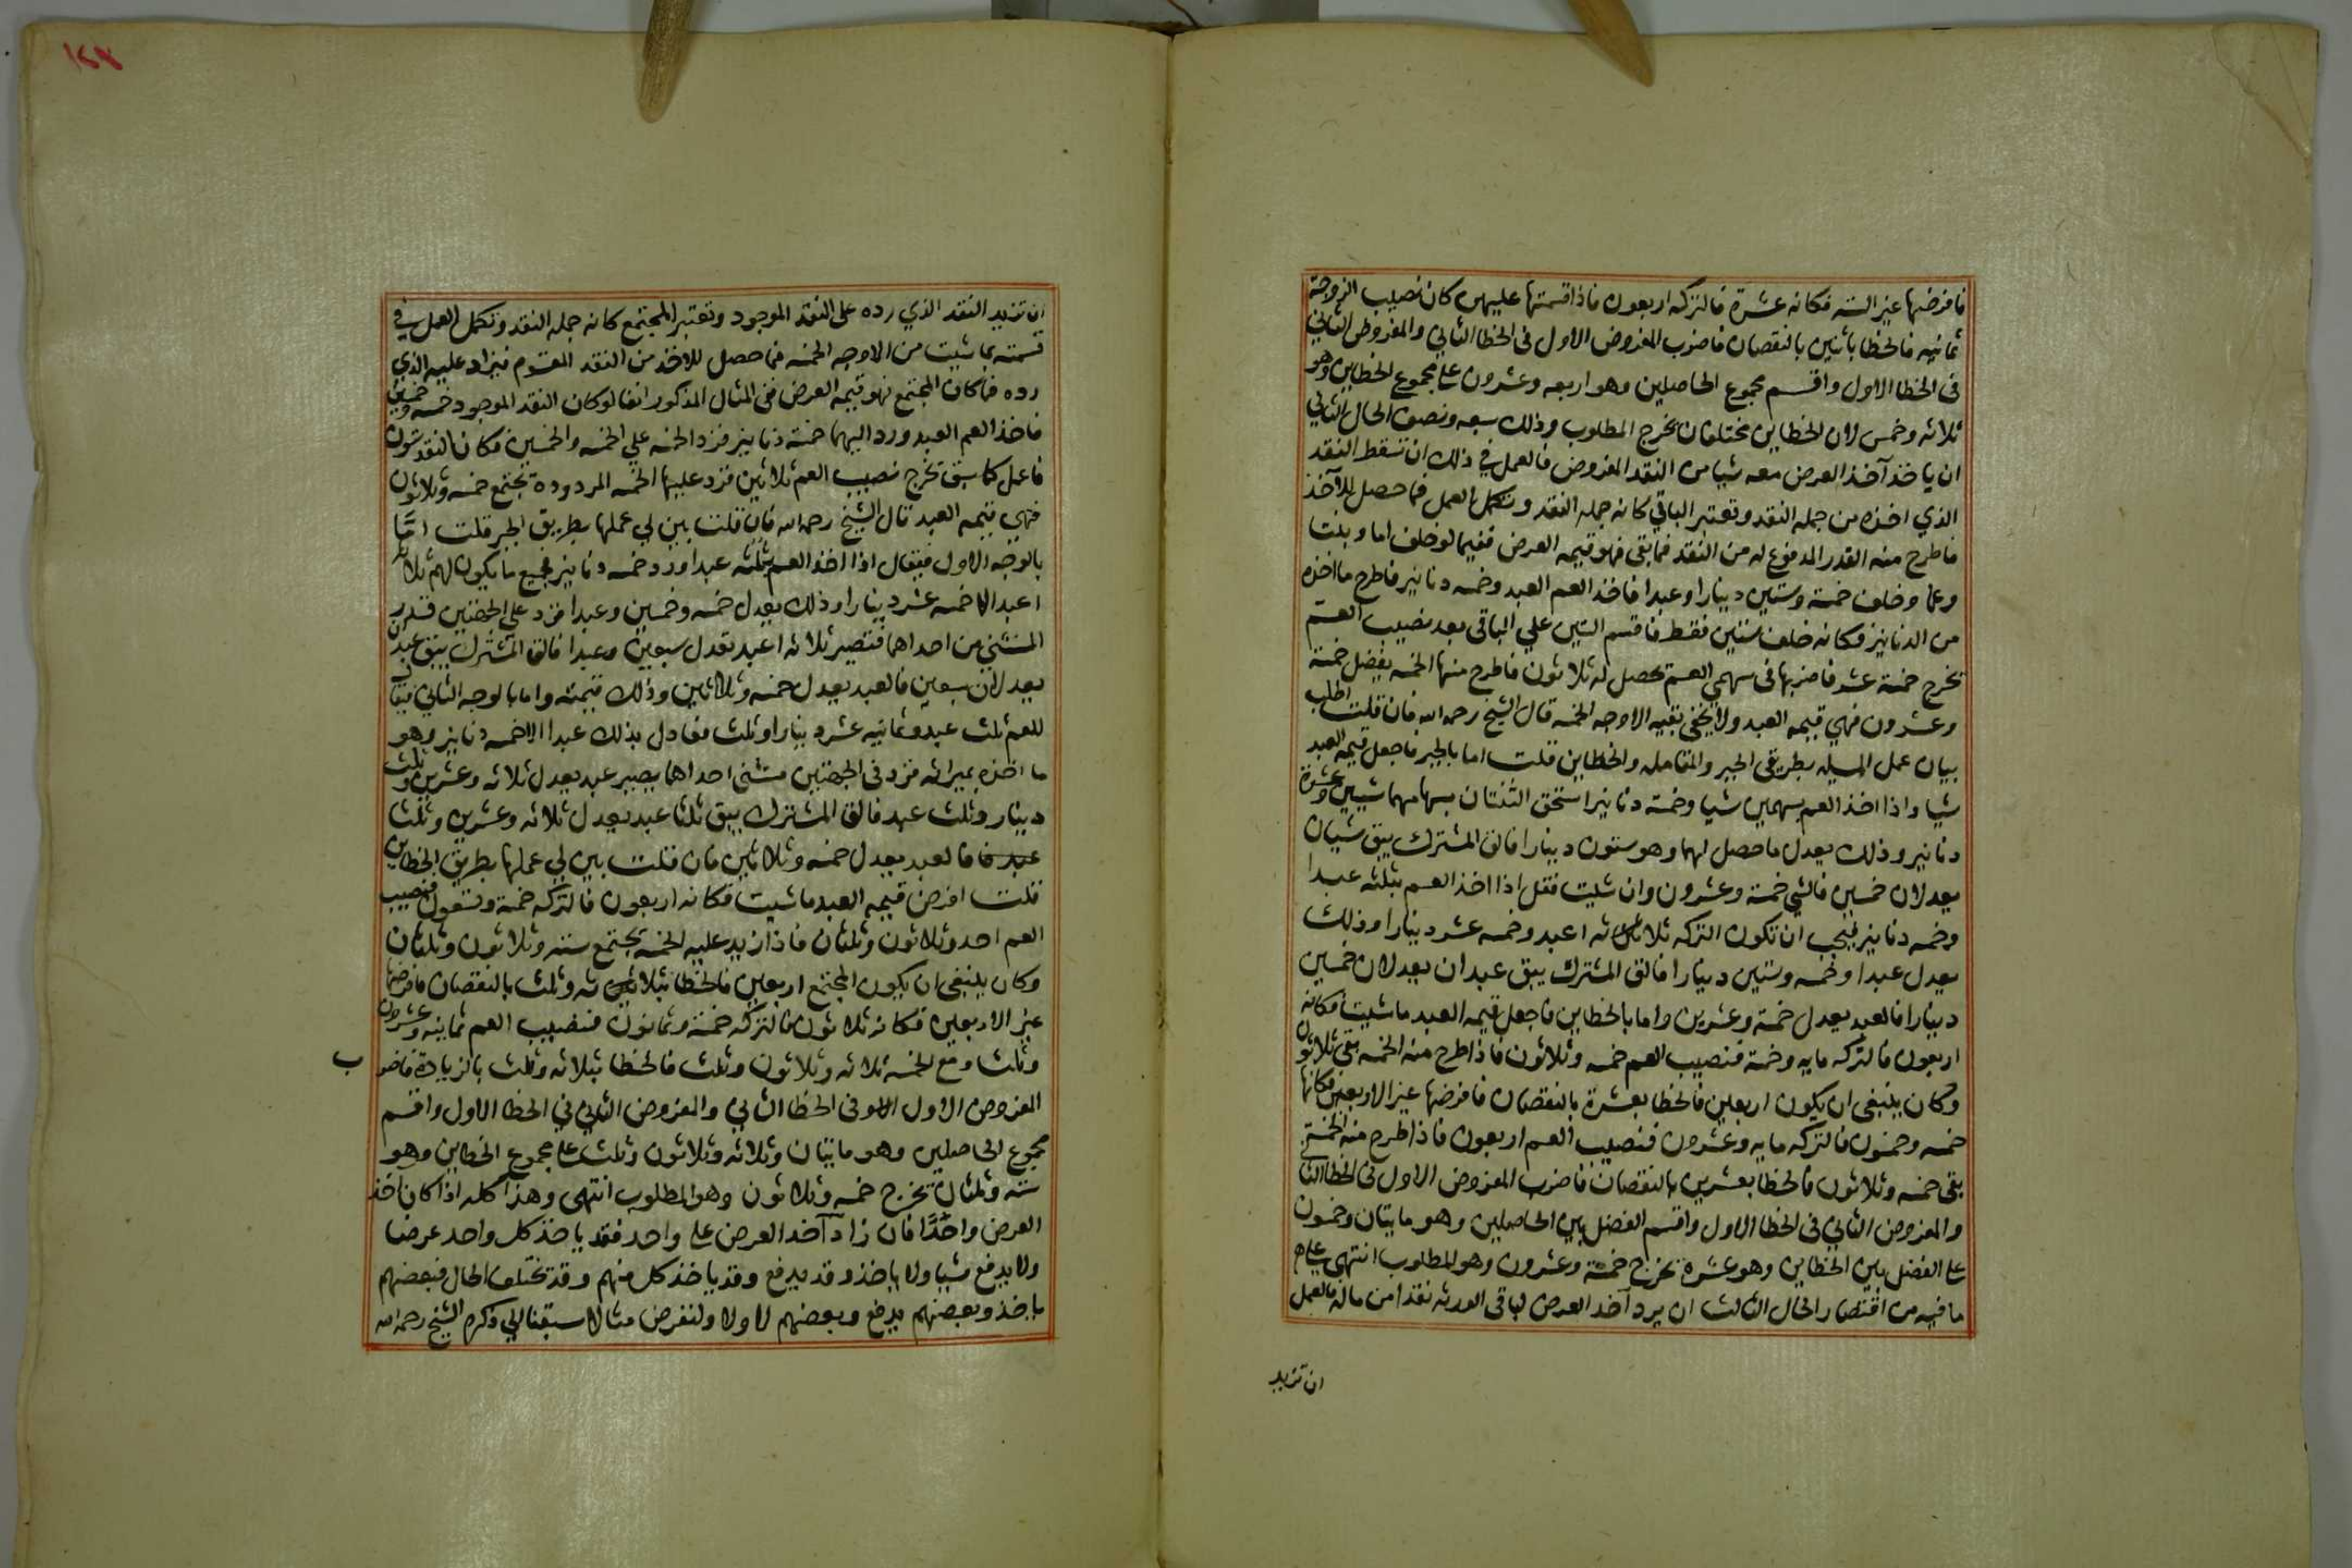 فافرضها غير الستة فكانه عشرة فالتركه اربعون فاذا قسمتها عليهم كان نصيب الزوجة
ثمانيه فالخطا باثنين بالنقصان فاضرب المفروض الاول فى الخطا الثاني والمفروض الثاني
فى الخطا الاول واقسم مجموع الحاصلين وهو اربعه وعشرون على مجموع الخطاين وهو
ثلاثه وخمس لان الخطاين مختلفان يخرج المطلوب وذلك سبعه ونصف الحال الثاني
ان ياخذ آخذ العرض معه شيا من النقد المفروض فالعمل في ذلك ان تسقط النقد
الذي اخذه من جمله النقد وتعتبر الباقي كانه جمله النقد وتكمل العمل فما حصل للآخذ
فاطرح منه القدر المدفوع له من النقد فما بقى فهو قيمه العرض ففيما لو خلف اما وبنتا
وعما وخلف خمسة وستين دينارا وعبدا فاخذ العم العبد وخمسه دنانير فاطرح ما اخذه
من الدنانير فكانه خلف ستين فقط فاقسم الستين علي الباقى بعد نصيب العم
تخرج خمسة عشر فاضربها فى سهمي العم تحصل له ثلاثون فاطرح منها الخمسه يفضل خمسة
وعشرون فهي قيمه العبد ولا يخفى بقيه الاوجه الخمسه قال الشيخ رحمه الله فان قلت اطلب
بيان عمل المسيله بطريقى الجبر والمقابله والخطاين قلت اما بالجبر فاجعل قيمه العبد
شيا واذا اخذ العم بسهمين شيا وخمسة دنانير استحق الثنتان بسهامهما شيين وعشرة
دنانير وذلك يعدل ما حصل لهما وهو ستون دينارا فالق المشترك يبق شيان
يعدلان خمسين فالشي خمسة وعشرون وان شيت فقل اذا اخذ العم بثلثه عبدا
وخمسه دنانير فيجب ان تكون التركه ثلاثه اعبد وخمسه عشر دينارا وذلك
يعدل عبدا وخمسه وستين دينارا فالق المشترك يبق عبدان يعدلان خمسين
دينارا فالعبد يعدل خمسة وعشرين واما بالخطاين فاجعل قيمه العبد ما شيت فكانه
اربعون فالتركه مايه وخمسة فنصيب العم خمسه وثلاثون فاذا طرح منه الخمسه بقى ثلاثون
وكان ينبغى ان يكون اربعين فالخطا بعشرة بالنقصان فافرضها غير الاربعين فكانها
خمسه وخمسون فالتركه مايه وعشرون فنصيب العم اربعون فاذا طرح منه الخمسة
بقى خمسه وثلاثون فالخطا بعشرين بالنقصان فاضرب المفروض الاول فى الخطا الثا
والمفروض الثاني فى الخطا الاول واقسم الفضل بين الحاصلين وهو مايتان وخمسون
على الفضل بين الخطاين وهو عشرة تخرج خمسة وعشرون وهو المطلوب انتهى على
ما فيه من اقتصار الحال الثالث ان يرد آخذ العرض لباقى الورثه نقدا من ماله فالعمل
ان تزيد
ان تزيد النقد الذي رده على النقد الموجود وتعتبر المجتمع كانه جمله النقد وتكمل العمل في
قسمته بما شيت من الاوجه الخمسه فما حصل للاخذ من النقد المقسوم فيزاد عليه الذي
رده فما كان المجتمع فهو قيمه العرض ففى المثال المذكور انفا لو كان النقد الموجود خمسه وخمسين
فاخذ العم العبد ورد اليهما خمسة دنانير فزد الخمسه علي الخمسه والخمسين فكان النقد ستون
فاعمل كما سبق تخرج نصيب العم ثلاثين فزد عليها الخمسه المردودة تجتمع خمسه وثلاثون
فهي قيمه العبد قال الشيخ رحمه الله فان قلت بين لي عملها بطريق الجبر قلت امّا
بالوجه الاول فيقال اذا اخذ العم بثلثه عبدا ورد خمسه دنانير فجميع ما يكون لهم ثلاثه
اعبد الا خمسه عشر دينارا وذلك يعدل خمسه وخمسين وعبدا فزد على الجهتين قدر
المستثني من احداهما فتصير ثلاثه اعبد تعدل سبعين وعبدا فالق المشترك يبق عبدان
يعدلان سبعين فالعبد يعدل خمسه وثلاثين وذلك قيمته واما بالوجه الثاني فيقال
للعم ثلث عبد وثمانيه عشر دينارا وثلث فعادل بذلك عبدا الا خمسه دنانير وهو
ما اخذه بميراثه فزد فى الجهتين مستثنى احداهما يصير عبد يعدل ثلاثه وعشرين وثلث
دينار وثلث عبد فالق المشترك يبق ثلثا عبد يعدل ثلاثه وعشرين وثلثا
فالعبد يعدل خمسه وثلاثين فان قلت بين لي عملها بطريق الخطاين
قلت افرض قيمه العبد ما شيت فكانه اربعون فالتركه خمسة وتسعون فنصيب
العم احد وثلاثون وثلثان فاذا زيد عليه الخمسة يجتمع سته وثلاثون وثلثان
وكان ينبغى ان يكون المجتمع اربعين فالخطا بثلاثه وثلث بالنقصان فافرضها
غير الاربعين فكانه ثلاثون فالتركه خمسة وثمانون فنصيب العم ثمانيه وعشرون
وثلث ومع الخمسه ثلاثه وثلاثون وثلث فالخطا بثلاثه وثلث بالزيادة فاضر
ب
المفروض الاول فى الخطا الثاني والمفروض الثاني في الخطا الاول واقسم
مجموع الحاصلين وهو مايتان وثلاثه وثلاثون وثلث على مجموع الخطاين وهو
سته وثلثان تخرج خمسه وثلاثون وهو المطلوب انتهى وهذا كله اذا كان آخذ
العرض واحدًا فان زاد آخذ العرض على واحد فقد ياخذ كل واحد عرضا
ولا يدفع شيا ولا ياخذ وقد يدفع وقد ياخذ كل منهم وقد تختلف الحال فبعضهم
ياخذ وبعضهم يدفع وبعضهم لا ولا ولنفرض مثالا سبقنا الي ذكره الشيخ رحمه الله